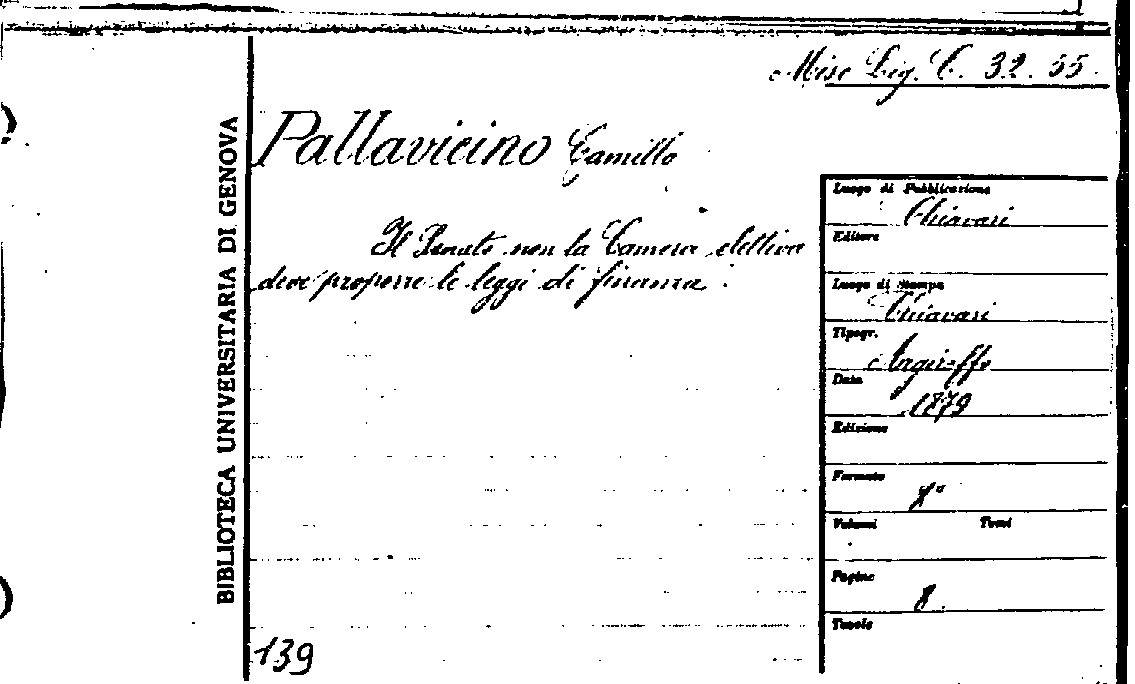 Misc Lig. C. 32. 55.
BIBLIOTECA UNIVERSITARIA DI GENOVA
Pallavicino Camillo
Il Senato non la Camera elettiva
deve proporre le leggi di finanza.
Luogo di Pubblicazione
Chiavari
Editore
Luogo di stampa
Chiavari
Tipogr.
Argiroffo
Data
1879
Edizione
Formato
8°
Volumi Tomi
Pagine
8.
Tavole
139